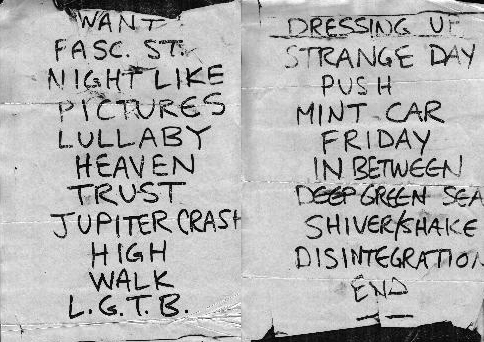 WANT
FASC. ST.
NIGHT LIKE
PICTURES
LULLABY
HEAVEN
TRUST
JUPITER CRASH
HIGH
WALK
L.G.T.B.
DRESSING UP
STRANGE DAY
PUSH
MINT CAR
FRIDAY
IN BETWEEN
DEEP GREEN SEA
SHIVER/SHAKE
DISINTEGRATION
END